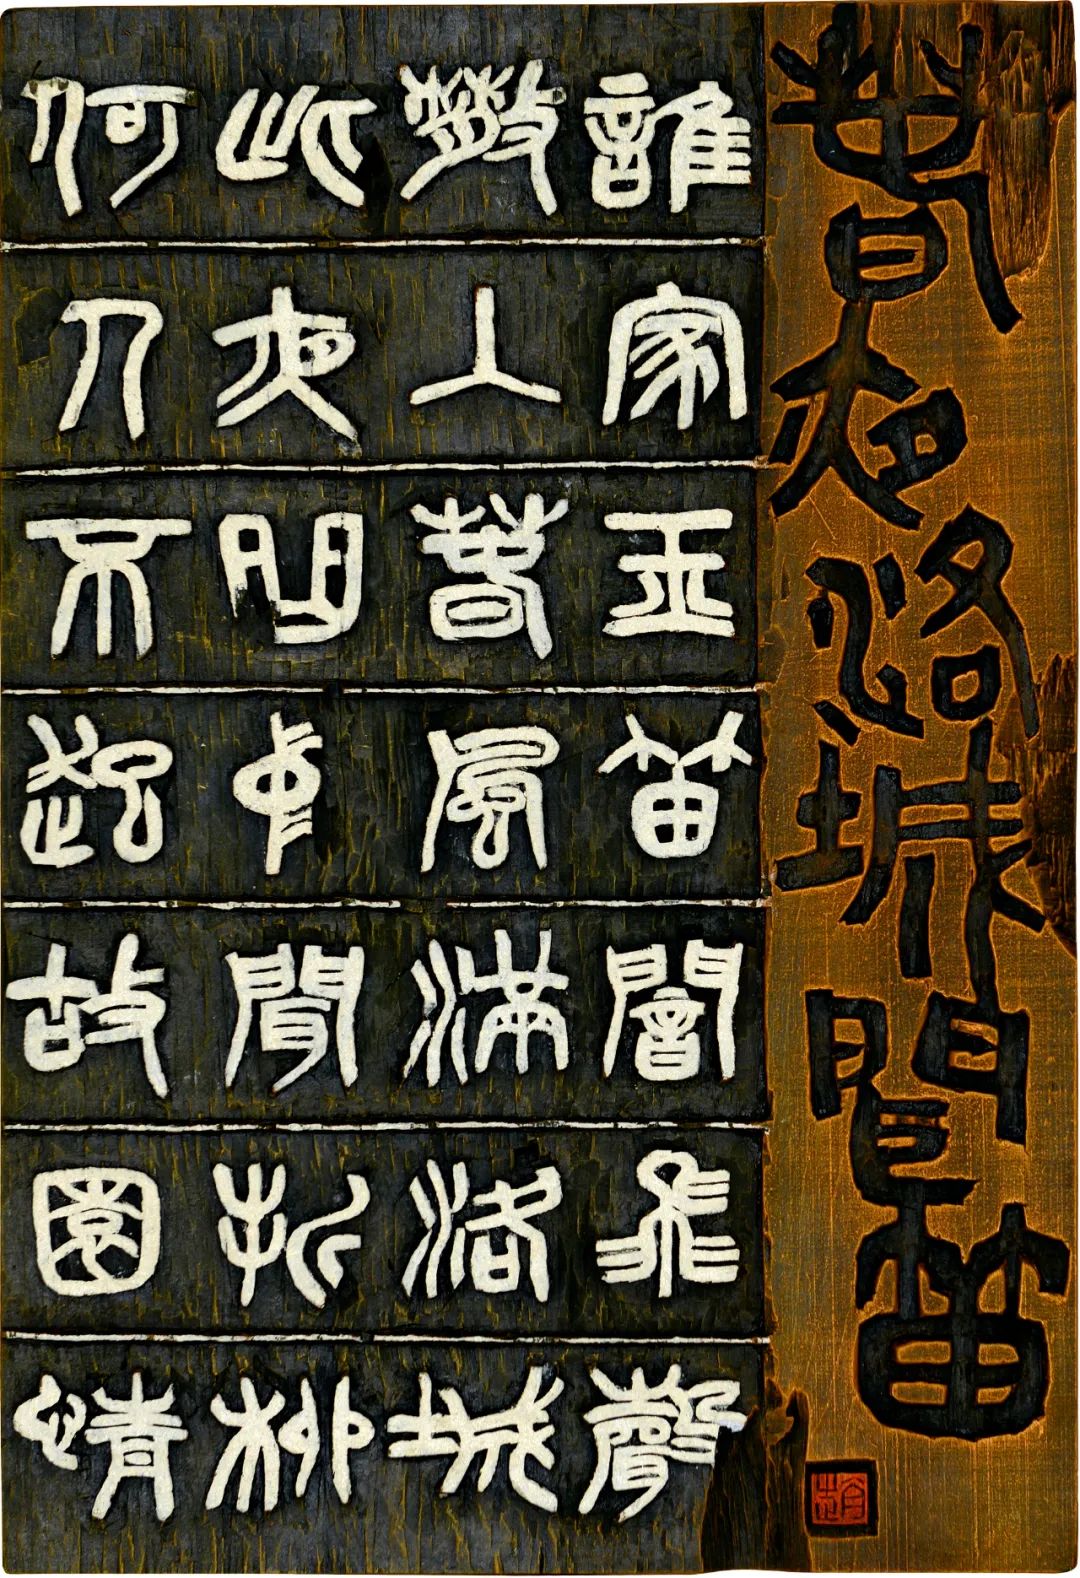 春夜洛城聞笛
誰家玉笛闇飛聲
散入春風滿洛城
此夜曲中聞折柳
何人不起故園情